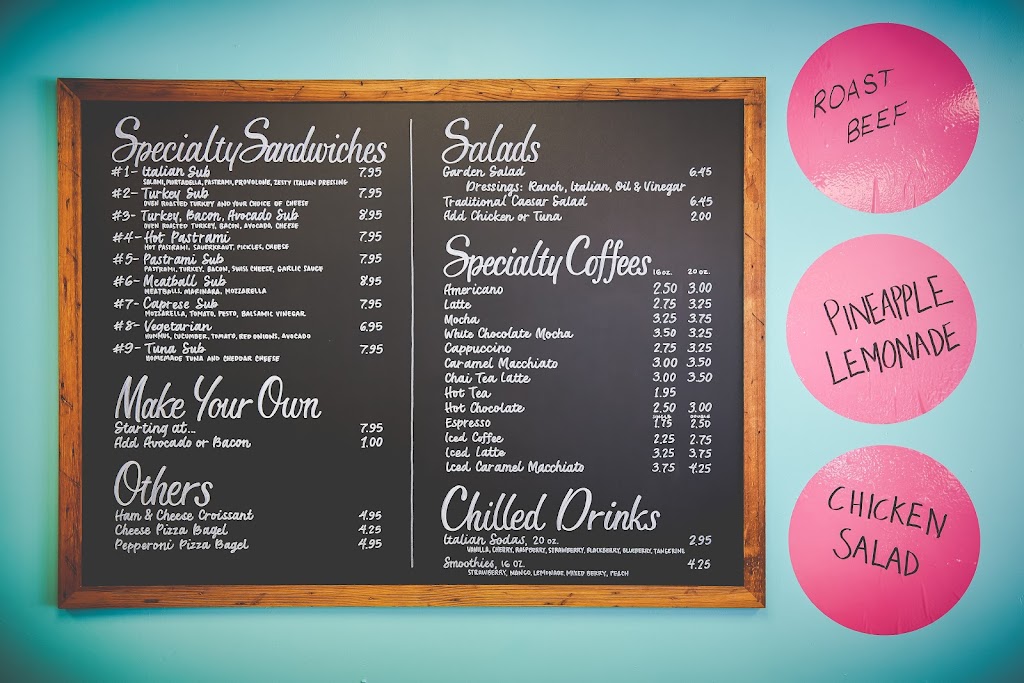 Specialty Sandwiches
#1- Italian Sub 7.95
SALAMI, MORTADELLA, PASTRAMI, PROVOLONE, ZESTY ITALIAN DRESSING
#2- Turkey Sub 7.95
OVEN ROASTED TURKEY AND YOUR CHOICE OF CHEESE
#3- Turkey, Bacon, Avocado Sub 8.95
OVEN ROASTED TURKEY, BACON, AVOCADO, CHEESE
#4- Hot Pastrami 7.95
HOT PASTRAMI, SAUERKRAUT, PICKLES, CHEESE
#5- Pastrami Sub 7.95
PASTRAMI, TURKEY, BACON, SWISS CHEESE, GARLIC SAUCE
#6- Meatball Sub 8.95
MEATBALLS, MARINARA, MOZZARELLA
#7- Caprese Sub 7.95
MOZZARELLA, TOMATO, PESTO, BALSAMIC VINEGAR
#8- Vegetarian 6.95
HUMMUS, CUCUMBER, TOMATO, RED ONIONS, AVOCADO
#9- Tuna Sub 7.95
HOMEMADE TUNA AND CHEDDAR CHEESE
Make Your Own
Starting at... 7.95
Add Avocado or Bacon 1.00
Others
Ham & Cheese Croissant 4.95
Cheese Pizza Bagel 4.25
Pepperoni Pizza Bagel 4.95
Salads
Garden Salad 6.45
Dressings: Ranch, Italian, Oil & Vinegar
Traditional Caesar Salad 6.45
Add Chicken or Tuna 2.00
Specialty Coffees 16 oz. 20 oz.
Americano 2.50 3.00
Latte 2.75 3.25
Mocha 3.25 3.75
White Chocolate Mocha 3.50 3.25
Cappuccino 2.75 3.25
Caramel Macchiato 3.00 3.50
Chai Tea Latte 3.00 3.50
Hot Tea 1.95
Hot Chocolate 2.50 3.00
SINGLE DOUBLE
Espresso 1.75 2.50
Iced Coffee 2.25 2.75
Iced Latte 3.25 3.75
Iced Caramel Macchiato 3.75 4.25
Chilled Drinks
Italian Sodas, 20 oz. 2.95
VANILLA, CHERRY, RASPBERRY, STRAWBERRY, BLACKBERRY, BLUEBERRY, TANGERINE
Smoothies, 16 OZ. 4.25
STRAWBERRY, MANGO, LEMONADE, MIXED BERRY, PEACH
ROAST
BEEF
PINEAPPLE
LEMONADE
CHICKEN
SALAD